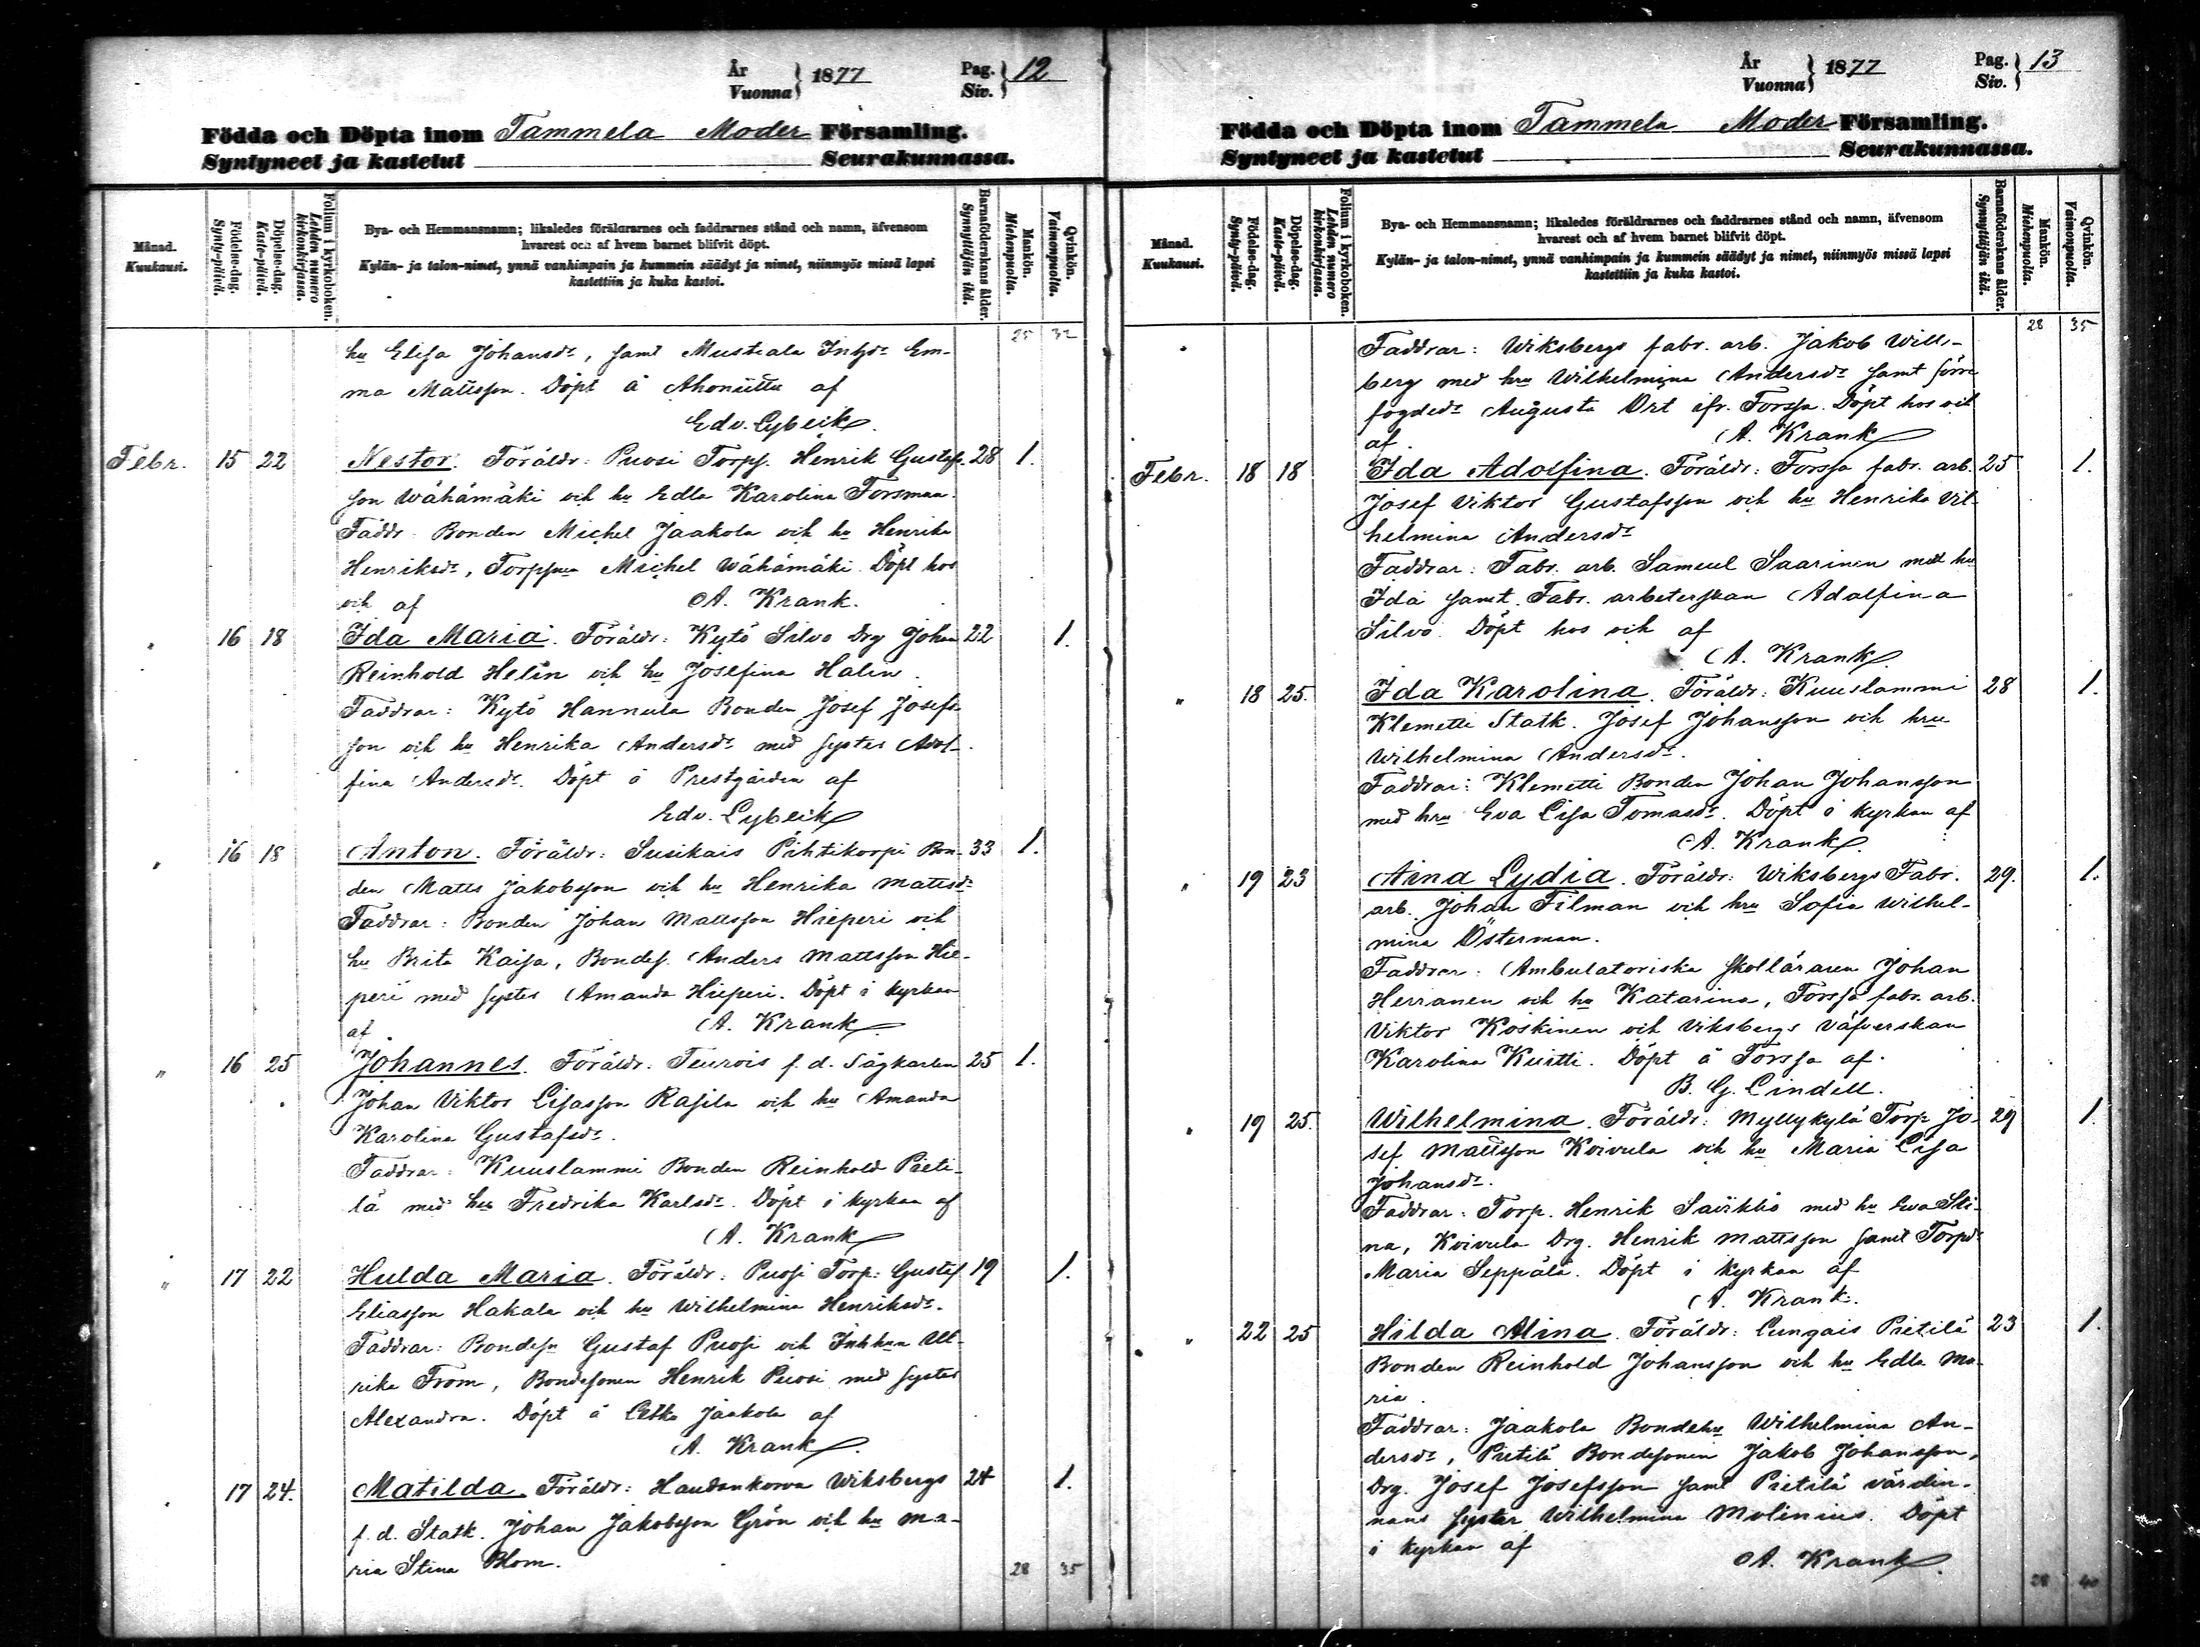 År
Vuonna } 1877 Pag.
Siv. } 12
Födda och Döpta inom Tammela Moder Församling.
Syntyneet ja kastetut Seurakunnassa.
Månad.
Kuukausi.
Födelse-dag.
Synty-päivä.
Döpelse-dag.
Kaste-päivä.
Folium i kyrkoboken.
Lehden numero kirkonkirjassa.
Bya- och Hemmansnamn; likaledes föräldrarnes och faddrarnes stånd och namn, äfvensom
hvarest och af hvem barnet blifvit döpt.
Kylän- ja talon-nimet, ynnä vanhimpain ja kummein säädyt ja nimet, niinmyös missä lapsi
kastettiin ja kuka kastoi.
Barnaföderskans ålder.
Synnyttäjän ikä.
Mankön.
Miehenpuolta.
Qvinkön.
Vaimonpuolta.
25 32
hu Elisa Johansdr, samt Mustiala Inhysdr Em-
ma Mattsson. Döpt å Ahoniittu af
Edv. Lybeck.
Febr. 15 22 Nestor. Föräldr: Puosi Torpf. Henrik Gustafs- 28 1.
son Wähämäki och hu Edla Karolina Forsman.
Faddr: Bonden Michel Jaakola och hu Henrika
Henriksdr, Torpson Michel Wähämäki. Döpt hos
och af A. Krank.
" 16 18 Ida Maria. Föräldr: Kytö Silvo Drg Johan 22 1.
Reinhold Helin och hu Josefina Halin.
Faddrar: Kytö Hannula Bonden Josef Josefs-
son och hu Henrika Andersdr med syster Adol-
fina Andersdr. Döpt å Prestgården af
Edv. Lybeck
" 16 18 Anton. Föräldr: Susikais Pihtikorpi Bon- 33 1.
den Matts Jakobsson och hu Henrika Mattsdr
Faddrar: Bonden Johan Mattsson Hieperi och
hu Brita Kaisa, Bondes. Anders Mattsson Hie-
peri med syster Amanda Hieperi. Döpt i kyrkan
af A. Krank
" 16 25 Johannes. Föräldr: Teurois f. d. Sågkarlen 25 1.
Johan Viktor Lisasson Rasila och hu Amanda
Karolina Gustafsdr.
Faddrar: Kuuslammi Bonden Reinhold Pieti-
lä med hu Fredrika Karlsdr. Döpt i kyrkan af
A. Krank
" 17 22 Hulda Maria. Föräldr: Puosi Torp: Gustaf 19 1.
Eliasson Hakala och hu Wilhelmina Henriksdr.
Faddrar: Bondesn Gustaf Puosi och Inhhun Ull-
rika From, Bondesonen Henrik Puosi med syster
Alexandra. Döpt å Jaakola af
A. Krank.
" 17 24. Matilda. Föräldr: Haudankorva Wiksbergs 24 1.
f. d. Statk. Johan Jakobsson Grön och hu Ma-
ria Stina Blom.
28 35
År
Vuonna } 1877 Pag.
Siv. } 13
Födda och Döpta inom Tammela Moder Församling.
Syntyneet ja kastetut Seurakunnassa.
Månad.
Kuukausi.
Födelse-dag.
Synty-päivä.
Döpelse-dag.
Kaste-päivä.
Folium i kyrkoboken.
Lehden numero kirkonkirjassa.
Bya- och Hemmansnamn; likaledes föräldrarnes och faddrarnes stånd och namn, äfvensom
hvarest och af hvem barnet blifvit döpt.
Kylän- ja talon-nimet, ynnä vanhimpain ja kummein säädyt ja nimet, niinmyös missä lapsi
kastettiin ja kuka kastoi.
Barnaföderskans ålder.
Synnyttäjän ikä.
Mankön.
Miehenpuolta.
Qvinkön.
Vaimonpuolta.
28 35
Faddrar: Wiksbergs fabr. arb. Jakob Wills-
berg med hru Wilhelmina Andersdr samt förre
fogdedr Augusta Ort ifr. Forssa. Döpt hos och
af A. Krank
Febr. 18 18 Ida Adolfina. Föräldr: Forssa fabr. arb. 25 1.
Josef Viktor Gustafsson och hu Henrika Vil-
helmina Andersdr
Faddrar: Fabr. arb. Samuel Saarinen med hu
Ida samt Fabr. arbeterskan Adalfina
Silvo. Döpt hos och af
A. Krank.
" 18 25. Ida Karolina. Föräldr: Kuuslammi 28 1.
Klemetti Statk. Josef Johansson och hru
Wilhelmina Andersdr.
Faddrar: Klemetti Bonden Johan Johansson
med hru Eva Lisa Tomasdr. Döpt i kyrkan af
A. Krank.
" 19 23 Aina Lydia. Föräldr: Wiksbergs Fabr. 29. 1.
arb. Johan Filman och hru Sofia Wilhel-
mina Österman.
Faddrar: Ambulatoriska skolläraren Johan
Herranen och hu Katarina, Forssa fabr. arb.
Viktor Koskinen och Viksbergs väfverskan
Karolina Kuitti. Döpt å Forssa af.
B. G. Lindell.
" 19 25. Wilhelmina. Föräldr: Myllykylä Torp. Jo- 29 1.
sef Mattsson Koivula och hu Maria Lisa
Johansdr.
Faddrar: Torp. Henrik med hu Eva Sti-
na, Koivula Drg. Henrik Mattsson samt Torpdr
Maria Seppälä. Döpt i kyrkan af
A. Krank.
" 22 25 Hilda Alina. Föräldr: Lungais Pietilä 23 1.
Bonden Reinhold Johansson och hu Edla Ma-
ria.
Faddrar: Jaakola Bondehu Wilhelmina An-
dersdr, Pietilä Bondesonen Jakob Johansson,
Drg. Josef Josefsson samt Pietilä värdin-
nans syster Wilhelmina Molinius. Döpt
i kyrkan af A. Krank.
28 40